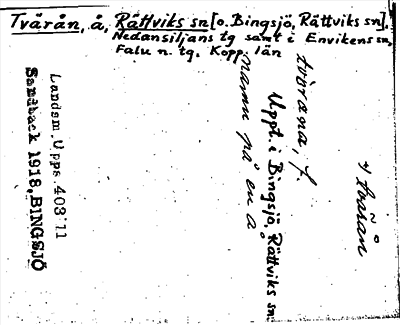 Tvärån, å, Rättviks sn [o. Bingsjö, Rättviks sn],
Nedansiljans tg samt i Envikens sn,
Falu n. tg. Kopp. län
tvärana, f.
Uppt. i Bingsjö, Rättviks sn.
namn på en å
Landsm. Upps. 403:11
Sandback 1918, BINGSJÖ